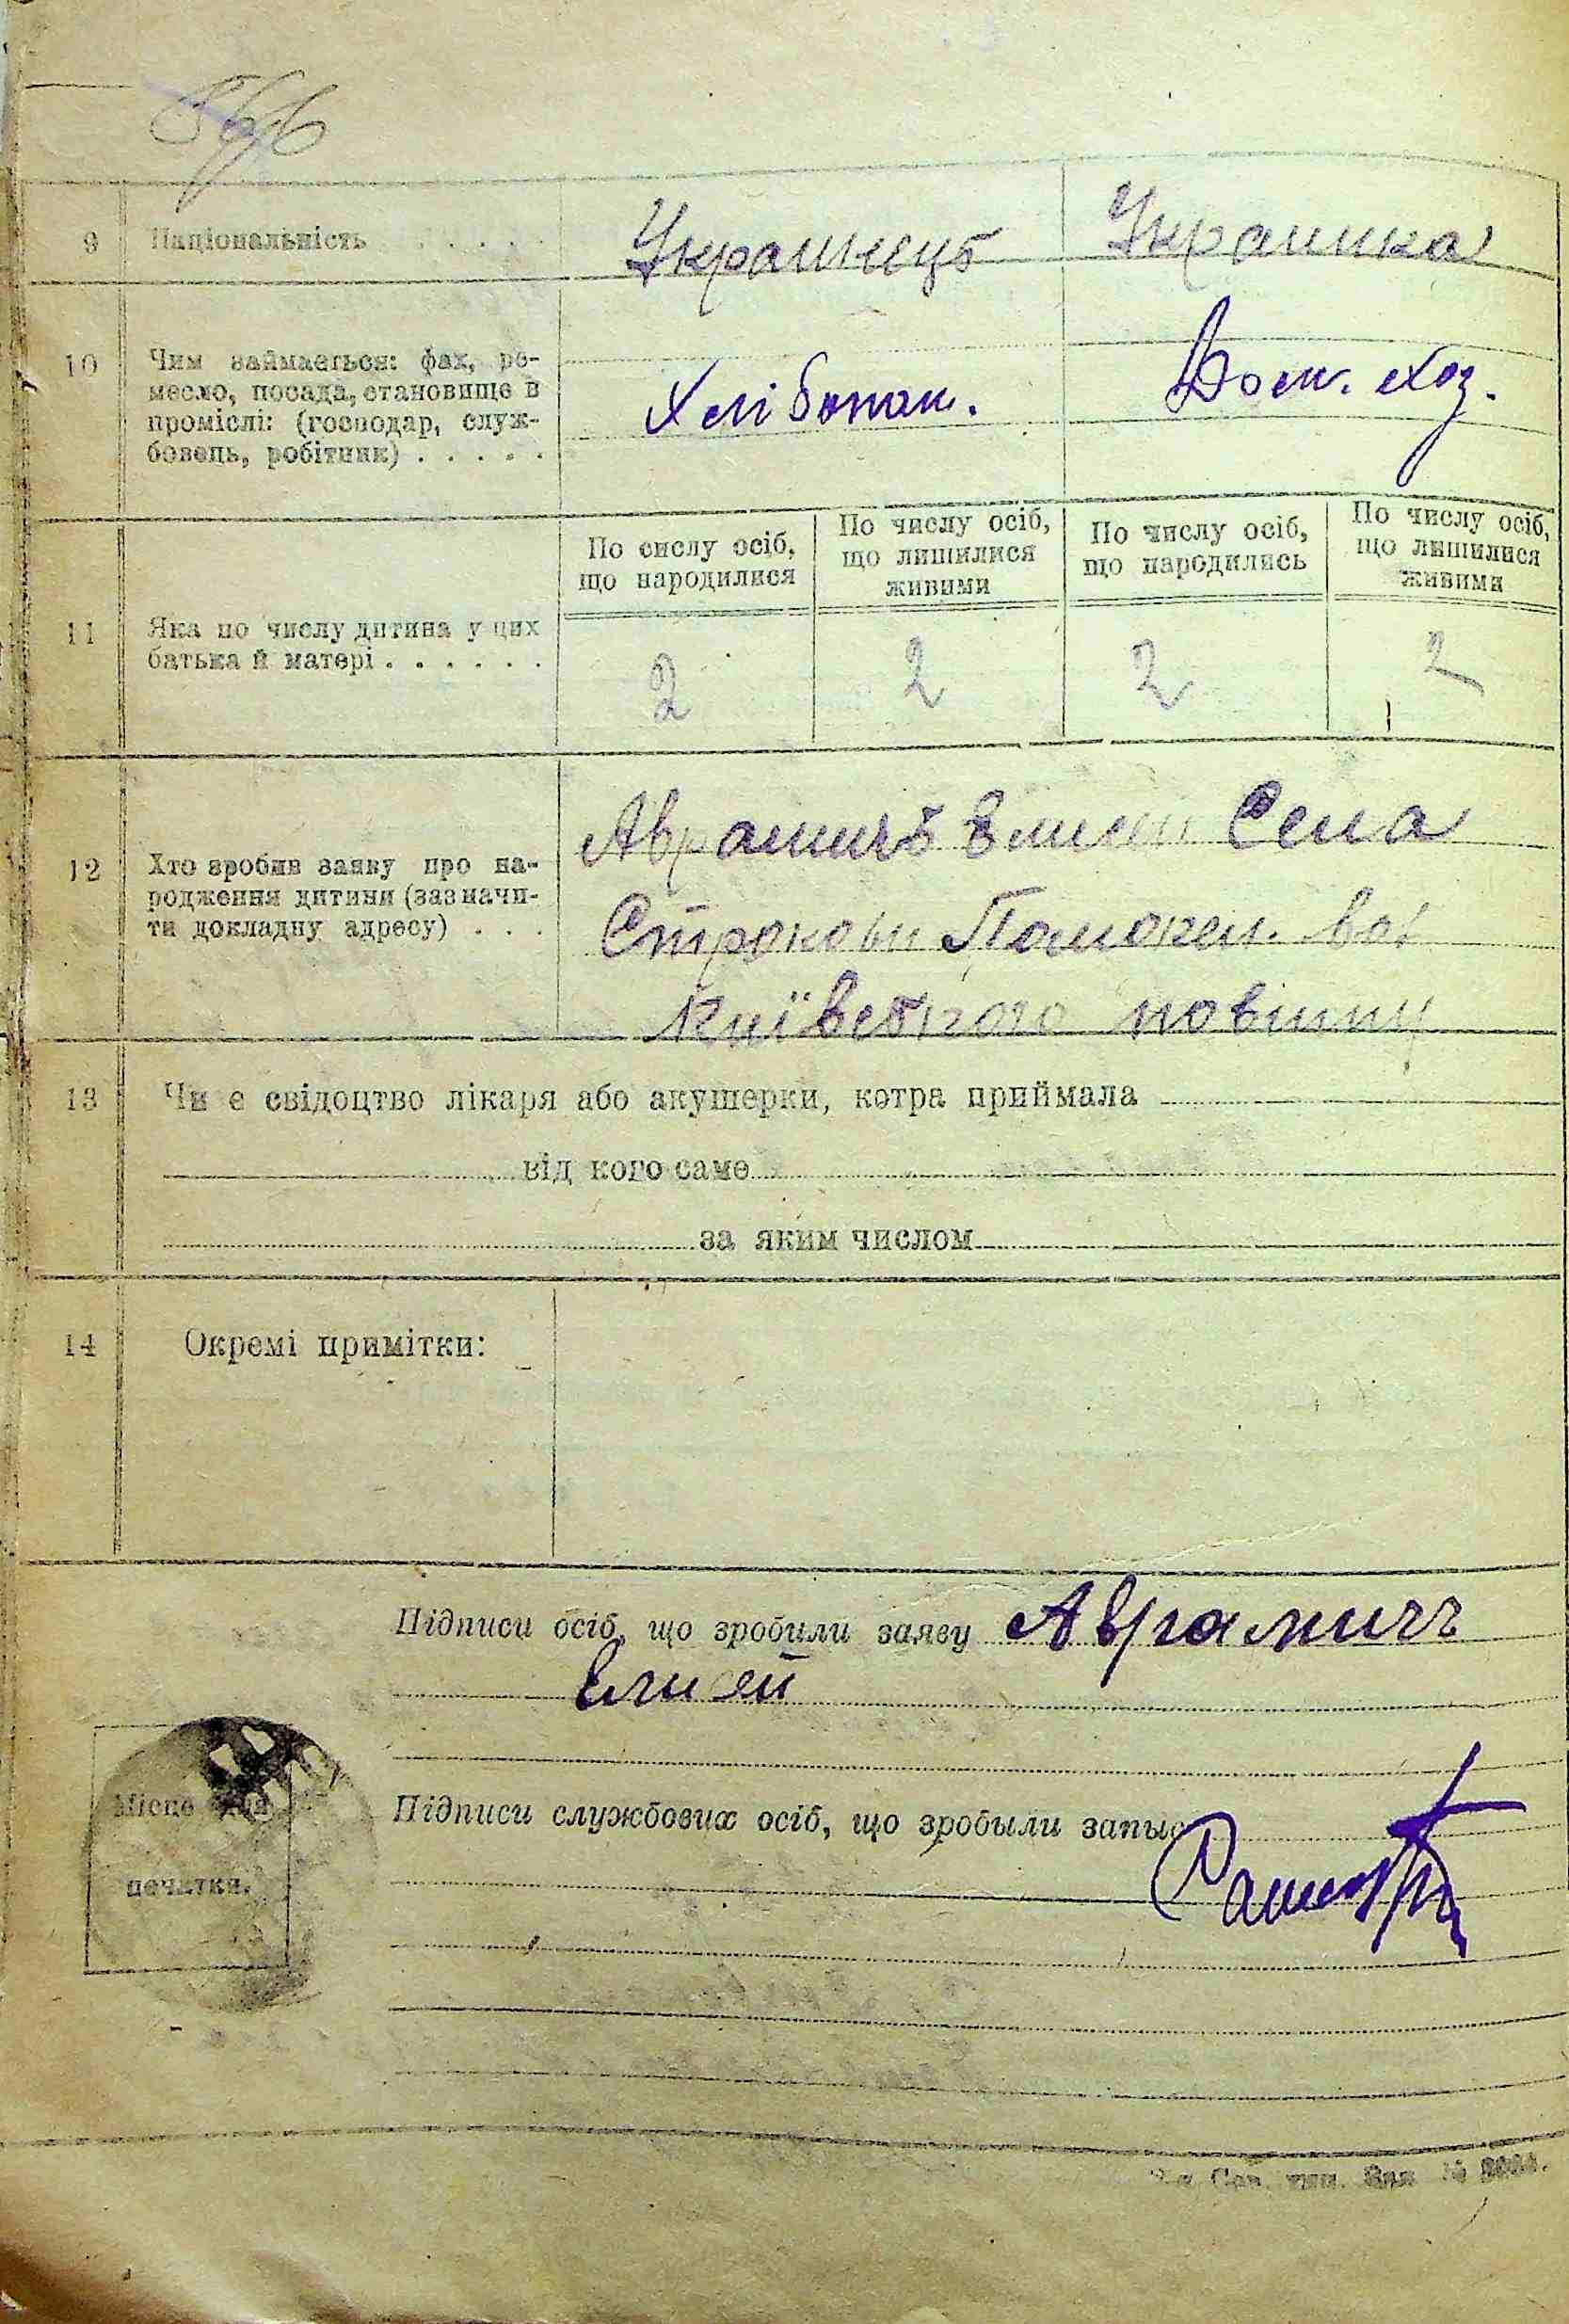 566
9 Національність . . . . . Украинець Украинка
10 Чим займається: фах, ре-
месло, посада, становище в
проміслі: (господар, служ-
бовець, робітник) . . . . . Хлібопаш. Дом. Хоз.
По числу осіб, що народилися
По числу осіб, що лишилися живими
По числу осіб, що народились
По числу осіб, що лишилися живими
11 Яка по числу дитина у цих
батька й матері . . . . . . 2 2 2 2
12 Хто зробив заяву про на-
родження дитини (зазначи-
ти докладну адресу) . . .
Аврамичъ Елисей Села
Строкови вол
Київського повіту
13 Чи є свідоцтво лікаря або акушерки, котра приймала
від кого саме
за яким числом
14 Окремі примітки:
Підписи осіб, що зробили заяву Аврамичъ
Елисей
Підписи службових осіб, що зробыли запыс
Місце для
печатки.